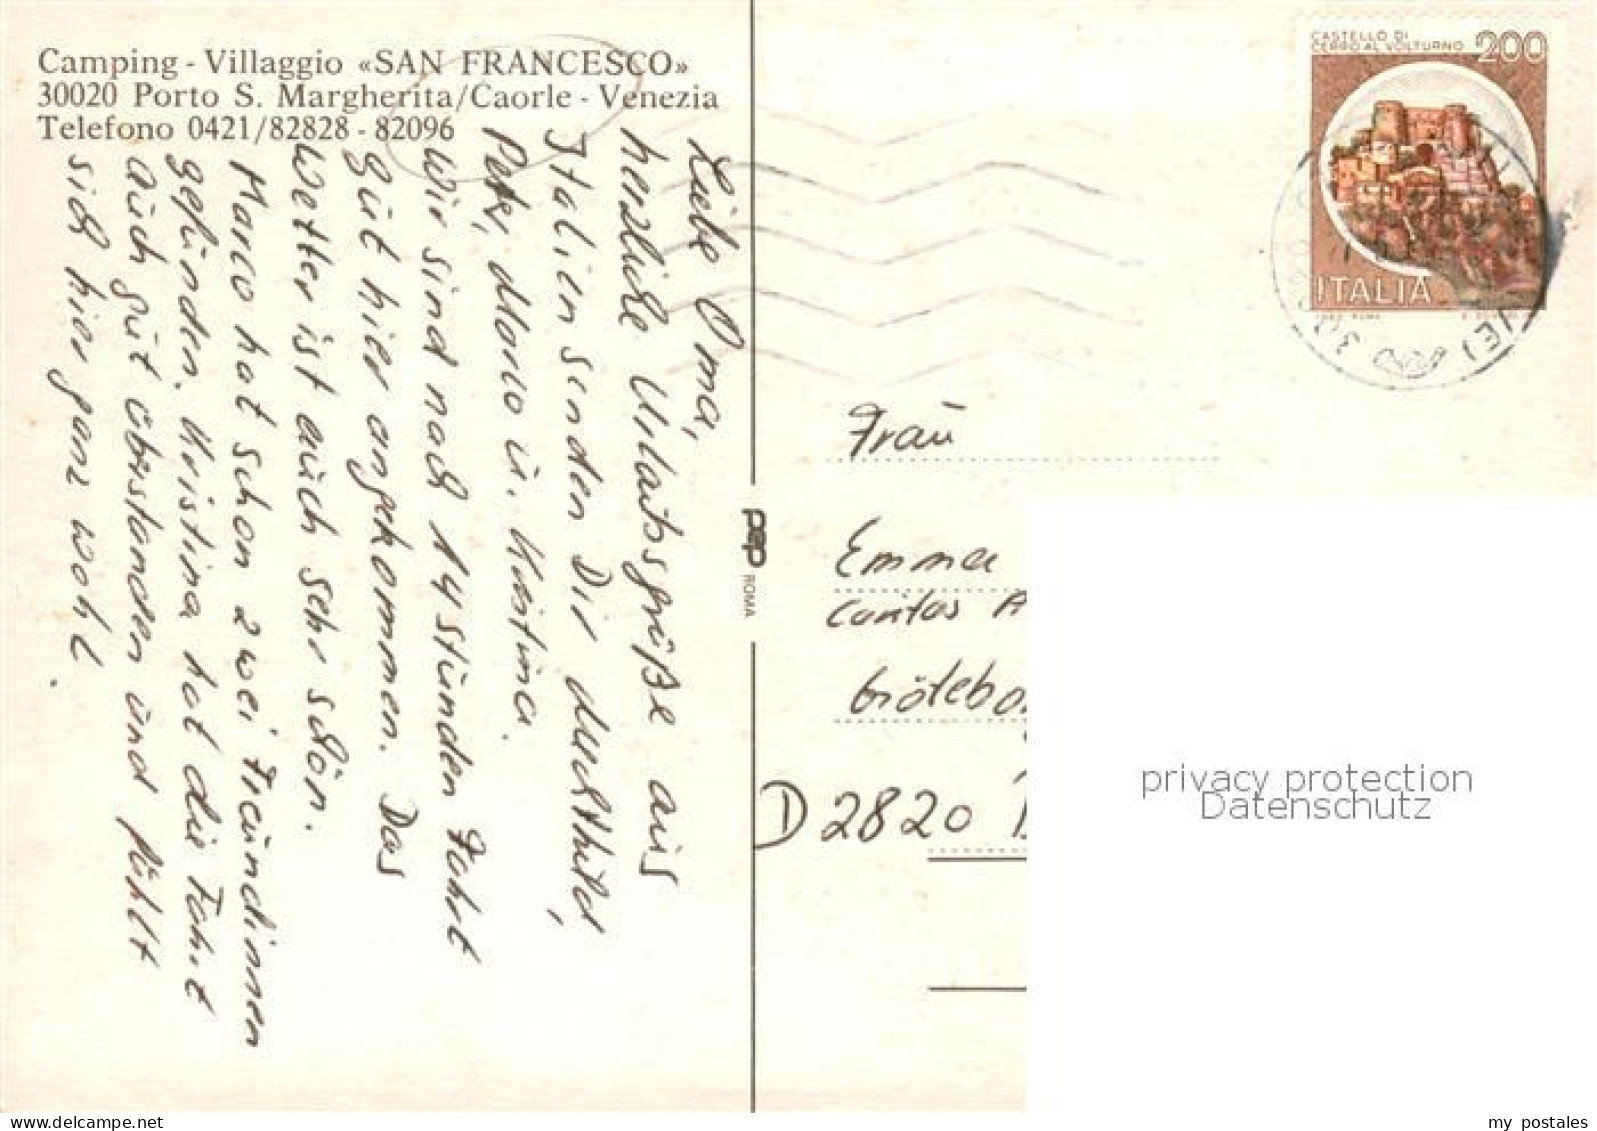 Camping - Villaggio «SAN FRANCESCO»
30020 Porto S. Margherita/Caorle - Venezia
Telefono 0421/82828 - 82096
Liebe Oma,
herzliche Urlaubsgrüße aus
Italien senden Dir Mechthild,
Peter, Marco u. Kristina.
Wir sind nach 14 stünden Fahrt
gut hier angekommen. Das
Wetter ist auch sehr schön.
Marco hat schon zwei Freundinnen
gefunden. Kristina hat die Fahrt
auch gut überstanden und fühlt
sich hier ganz wohl.
pep ROMA
CASTELLO DI
CERRO AL VOLTURNO 200
ITALIA
Frau
Emma
Caritas A
Götebo
D 2820
privacy protection
Datenschutz
my postales